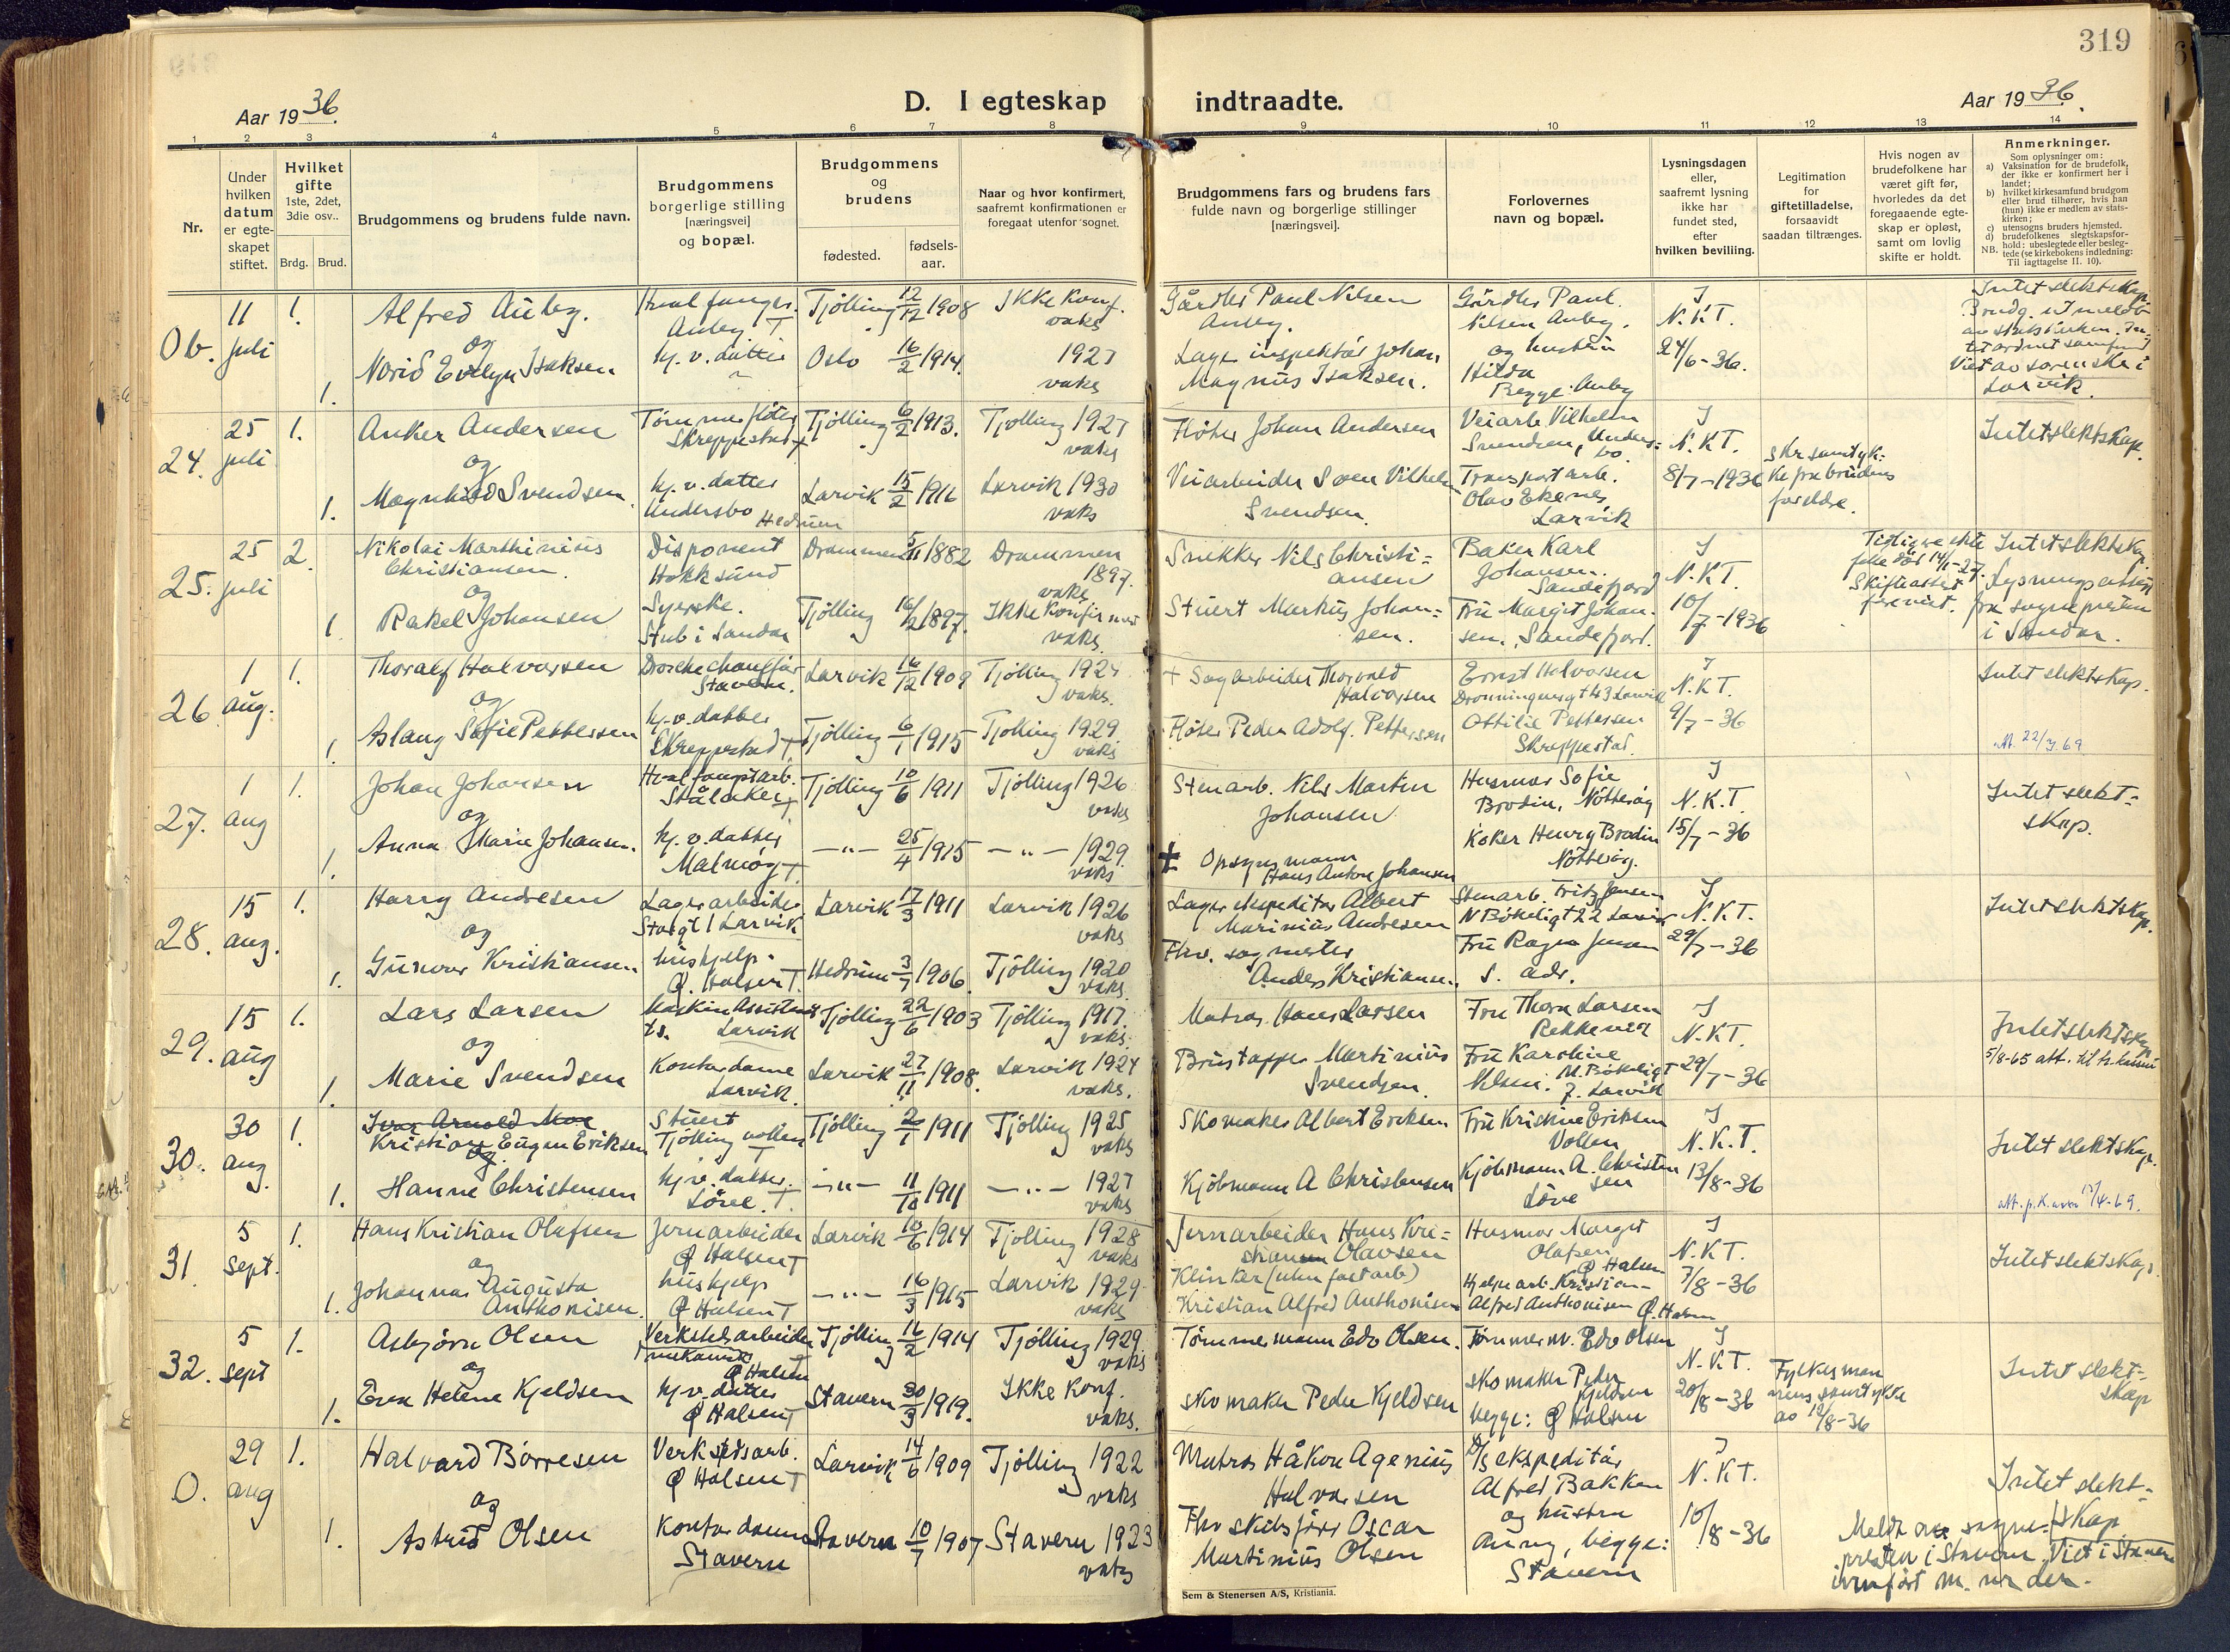 319
Aar 1936.
D. I egteskap indtraadte.
Aar 1936.
1 2 3 4 5 6 7 8 9 10 11 12 13 14
Nr.
Under hvilken datum er egteskapet stiftet.
Hvilket gifte 1ste, 2det, 3die osv..
Brdg. Brud.
Brudgommens og brudens fulde navn.
Brudgommens borgerlige stilling [næringsvei] og bopæl.
Brudgommens og brudens
fødested.
fødsels-aar.
Naar og hvor konfirmert, saafremt konfirmationen er foregaat utenfor sognet.
Brudgommens fars og brudens fars fulde navn og borgerlige stillinger [næringsvei].
Forlovernes navn og bopæl.
Lysningsdagen eller, saafremt lysning ikke har fundet sted, efter hvilken bevilling.
Legitimation for giftetilladelse, forsaavidt saadan tiltrænges.
Hvis nogen av brudefolkene har været gift før, hvorledes da det foregaaende egteskap er opløst, samt om lovlig skifte er holdt.
Anmerkninger.
Som oplysninger om:
a) Vaksination for de brudefolk, der ikke er konfirmert her i landet;
b) hvilket kirkesamfund brudgom eller brud tilhører, hvis han (hun) ikke er medlem av statskirken;
c) utensogns bruders hjemsted.
d) brudefolkenes slegtskapsforhold: ubeslegtede eller beslegtede (se kirkebokens indledning:
NB. Til iagttagelse II. 10).
Ob. 11 juli 1.
Alfred Auby.
og
Norid Evelyn Isaksen
1.
Auby T
hj. v. datter
Tjølling 12/12 1908
Oslo 16/2 1914.
Ikke Konf. vaks
1927 vaks
Gårdbr Paul Nilsen Auby.
Lager inspektør Johan Magnus Isaksen.
Gårdbr Paul Nilsen Auby.
og hustru Hilda
Begge: Auby
I N.K.T. 24/6-36.
Intet slektskap.
Larvik.
24. 25 juli 1.
Anker Andersen
og
Magnhild Svendsen
1.
Tømmerfløter Skreppestad T
hj. v. datter Undersbo Hedrum
Tjølling 6/2 1913.
Larvik 15/2 1916
Tjølling 1927 vaks
Larvik 1930 vaks
Fløter Johan Andersen
Veiarbeider Søren Vilhelm Svendsen.
Veiarb. Vilhelm Svendsen, Undersbo.
Transportarb. Olav Ekenes Larvik
I N.K.T. 8/7-1936
Skr. samtykke fra brudens foreldre.
Intet slektskap.
25. 25 juli 2.
Nikolai Marthinius Christiansen.
og
Rakel Johansen
1.
Disponent Hokksund
Syerske. Stub i Sandar
Drammen 5/11 1882
Tjølling 16/2 1897.
Drammen 1897. vaks
Ikke Konfirmert vaks.
Snekker Nils Christiansen
Stuert Markus Johansen.
Baker Karl Johansen. Sandefjord
Fru Margit Johansen, Sandefjord.
I N.K.T. 10/7-1936
Intet slektskap.
Lysningsattest fra sognepresten i Sandar.
26. 1 aug. 1.
Thoralf Halvorsen
og
Aslaug Sofie Pettersen
1.
Droschechauffør Stavern.
hj. v. datter Skreppestad T
Larvik 16/12 1909
Tjølling 6/1 1915
Tjølling 1924 vaks.
Tjølling 1929 vaks
+ Sagarbeider Thorvald Halvorsen
Fløter Peder Adolf. Pettersen
Ernst Halvorsen Dronningensgt 43 Larvik
Ottilie Pettersen Skreppestad.
I N.K.T. 9/7-36
Intet slektskap.
27. 1 aug 1.
Johan Johansen
og
Anna Marie Johansen.
1.
Hvalfangstarb. Ståłaker T
hj. v. datter Malmøy T.
Tjølling 10/6 1911
—"— 25/4 1915
Tjølling 1926 vaks
—"— 1929. vaks
Stenarb. Nils Martin Johansen
+ Opsynsmann Hans Anton Johansen
Husmor Sofie Brodin, Nøtterøy
Koker Henry Brodin Nøtterøy.
I N.K.T. 15/7-36
Intet slektskap.
28. 15 aug. 1.
Harry Andresen
og
Gunvor Kristiansen
1.
Lagerarbeider Larvik
hushjelp. Ø. Halsen T.
Larvik 17/3 1911
Hedrum 3/7 1906.
Larvik 1926 vaks
Tjølling 1920 vaks.
Lagerekspeditør Albert Marinius Andresen
Fhv. sagmester Anders Kristiansen.
Stenarb. Fritz Jensen N Bøkeligt 22 Larvik
Fru Ragna Jensen S. adr.
I N.K.T. 29/7-36
Intet slektskap.
29. 15 aug 1.
Lars Larsen
og
Marie Svendsen
1.
Maskin Assistent Larvik
Kontordame Larvik.
Tjølling 22/6 1903
Larvik 27/11 1908.
Tjølling 1917. vaks.
Larvik 1924 vaks.
Matros. Hans Larsen
Brustapper Martinius Svendsen
Fru Thora Larsen Rekkevik
Fru Karoline Nilsen. N. Bøkeligt 7. Larvik
I N.K.T. 29/7-36
Intet slektskap
30. 30 aug. 1.
Kristian Eugen Eriksen
og
Hanne Christensen
1.
Stuert Tjøllingvollen T
hj. v. datter. Løve. T.
Tjølling 20/1 1911
—"— 11/10 1911
Tjølling 1925 vaks
—"— 1927 vaks
Skomaker Albert Eriksen
Kjøbmann A Christensen
Fru Kristine Eriksen Vollen
Kjøbmann A. Christensen Løve
I N.K.T. 13/8-36
Intet slektskap.
31. 5 sept. 1.
Hans Kristian Olafsen
og
Johanna Augusta Anthonisen.
1.
Jernarbeider Ø Halsen T
hushjelp Ø Halsen T
Larvik 10/6 1914
—"— 16/3 1915
Tjølling 1928 vaks
Larvik 1929 vaks
Jernarbeider Hans Kristian Olavsen
Klinker (uten fast arb)
Kristian Alfred Anthonisen
Husmor Margit Olafsen Ø Halsen
Hjelpearb. Kristian Alfred Anthonisen Ø. Halsen
I N.K.T. 7/8-36
Intet slektskap.
32. 5 sept 1.
Asbjørn Olsen
og
Eva Helene Kjeldsen
1.
Verkstedsarbeider mekanisk Ø Halsen
hj. v. datter Ø Halsen T
Tjølling 16/2 1914
Stavern 30/3 1919.
Tjølling 1929 vaks
Ikke Konf. vaks.
Tømmermann Edv Olsen.
Skomaker Peder Kjeldsen
Tømmerm. Edv Olsen
Skomaker Peder Kjeldsen
begge: Ø Halsen
I N.K.T. 20/8-36
Fylkesmannens samtykke av 18/8-36
Intet slektskap
O. 29 aug 1.
Halvard Børresen
og
Astrid Olsen
1.
Verkstedsarb. Ø Halsen T
Kontordame Stavern
Larvik 14/6 1909
Stavern 10/7 1907
Tjølling 1922 vaks
Stavern 1923 vaks
Matros Håkon Agenius Halvorsen
Fhv skibsfører Oscar Martinius Olsen
ekspeditør Alfred Bakken
og hustru Anny, begge: Stavern
I N.K.T. 10/8-36
Intet slektskap
Meldt av sognepresten i Stavern. Viet i Stavern
innført m. nr der.
Sem & Stenersen A/S, Kristiania.